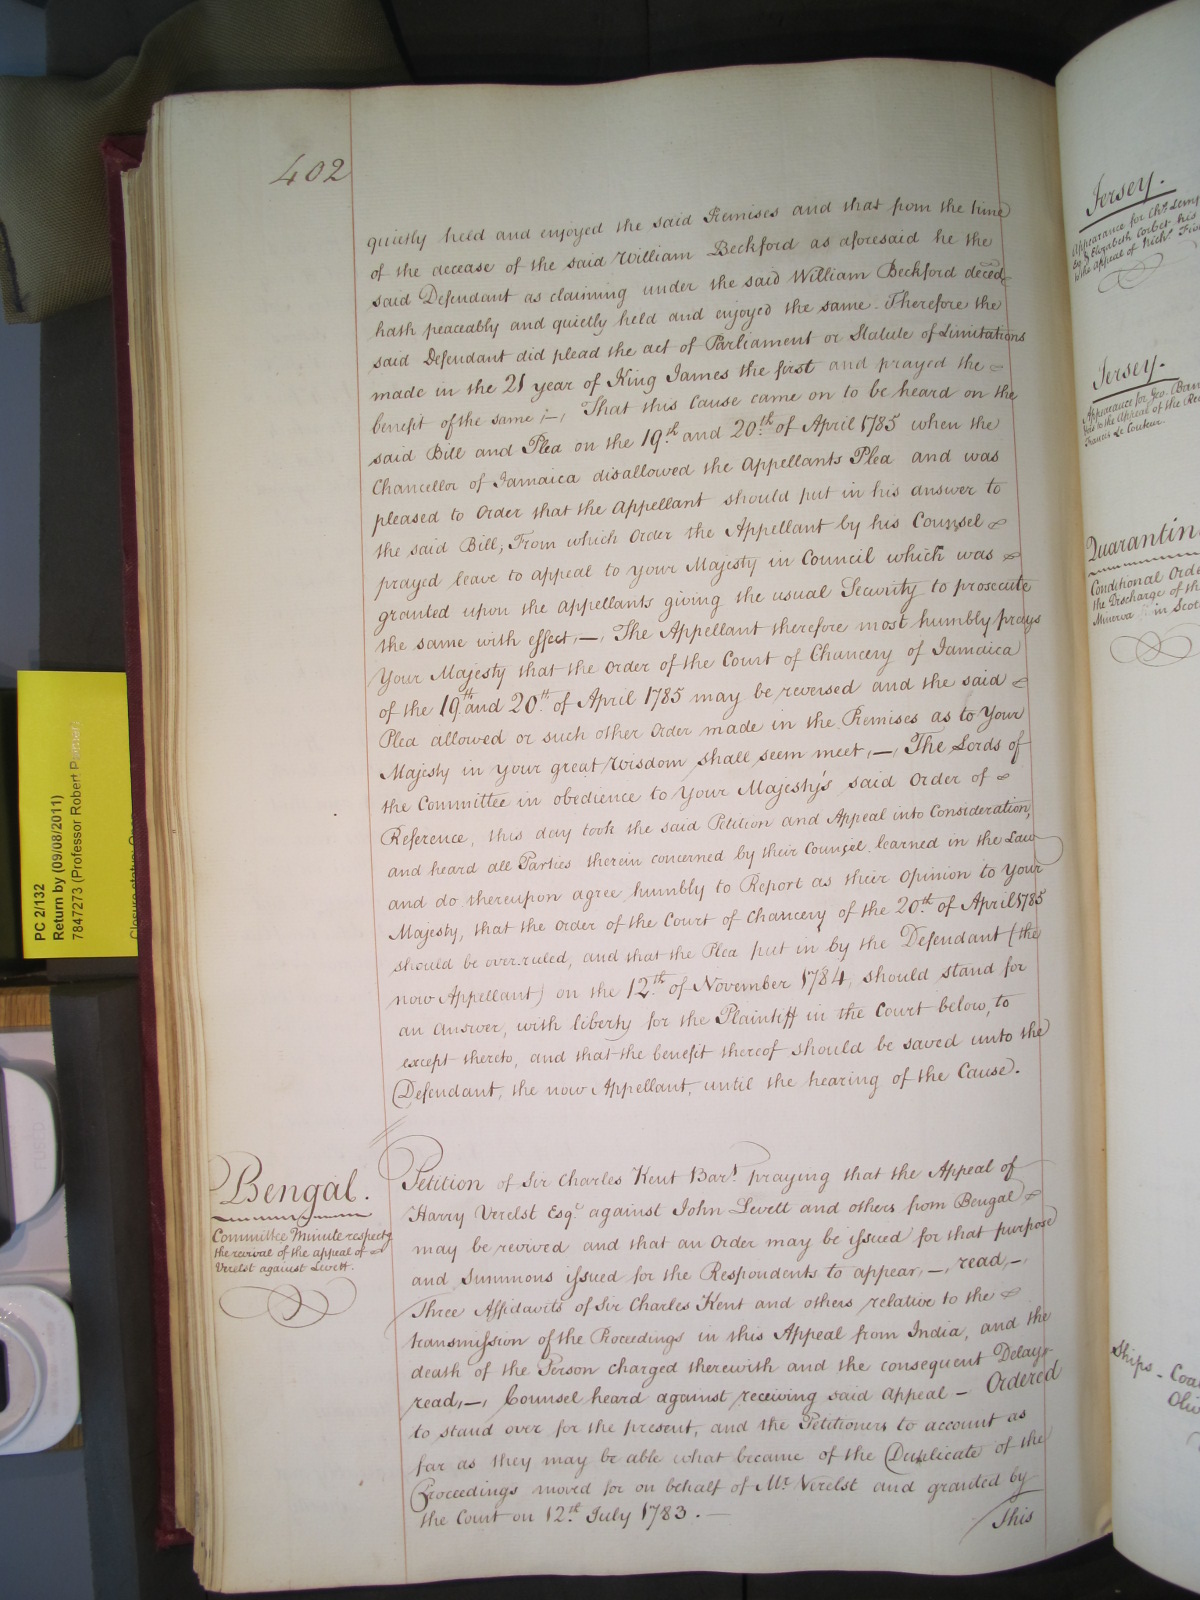 402
quietly held and enjoyed the said Premises and that from the time
of the decease of the said William Beckford as aforesaid he the
said Defendant as claiming under the said William Beckford deced
hath peaceably and quietly held and enjoyed the same. Therefore the
said Defendant did plead the act of Parliament or Statute of Limitations
made in the 21 year of King James the first and prayed the
benefit of the same ;—, That this Cause came on to be heard on the
said Bill and Plea on the 19.th and 20.th of April 1785 when the
Chancellor of Jamaica disallowed the Appellants Plea and was
pleased to order that the Appellant should put in his answer to
the said Bill; From which Order the Appellant by his Counsel
prayed leave to appeal to your Majesty in Council which was
granted upon the Appellants giving the usual Security to prosecute
the same with effect,—, The Appellant therefore most humbly prays
Your Majesty that the Order of the Court of Chancery of Jamaica
of the 19.th and 20.th of April 1785 may be reversed and the said
Plea allowed or such other Order made in the Premises as to Your
Majesty in your great Wisdom shall seem meet,—, The Lords of
the Committee in obedience to Your Majesty's said Order of
Reference, this day took the said Petition and Appeal into Consideration,
and heard all Parties therein concerned by their Counsel learned in the Law
and do thereupon agree humbly to Report as their Opinion to Your
Majesty, that the Order of the Court of Chancery of the 20.th of April 1785
should be over.ruled, and that the Plea put in by the Defendant (the
now Appellant) on the 12.th of November 1784, should stand for
an Answer, with liberty for the Plaintiff in the Court below, to
except thereto, and that the benefit thereof should be saved unto the
Defendant, the now Appellant, until the hearing of the Cause.
Bengal.
Committee Minute respectg
the revival of the appeal of
Verelst against Levett.
Petition of Sir Charles Kent Bart. praying that the Appeal of
Harry Verelst Esqr. against John Levett and others from Bengal
may be revived and that an Order may be issued for that purpose
and Summons issued for the Respondents to appear,—, read,—,
Three Affidavits of Sir Charles Kent and others relative to the
transmission of the Proceedings in this Appeal from India, and the
death of the Person charged therewith and the consequent Delay
read,—, Counsel heard against receiving said Appeal — Ordered
to stand over for the present, and the Petitioners to account as
far as they may be able what became of the Duplicate of the
Proceedings moved for on behalf of Mr. Verelst and granted by
the Court on 12.th July 1783. —
This
PC 2/132
Return by (09/08/2011)
7847273 (Professor Robert
Jersey.
Appearance for
Elizabeth Corbet his
Appeal of Nichs.
Jersey.
Appearance for Geo.
to the Appeal of the
Francis Le Couteur.
Quarantin
Conditional Orde
the Discharge of th
Minerva in Scot
Ships - Coa